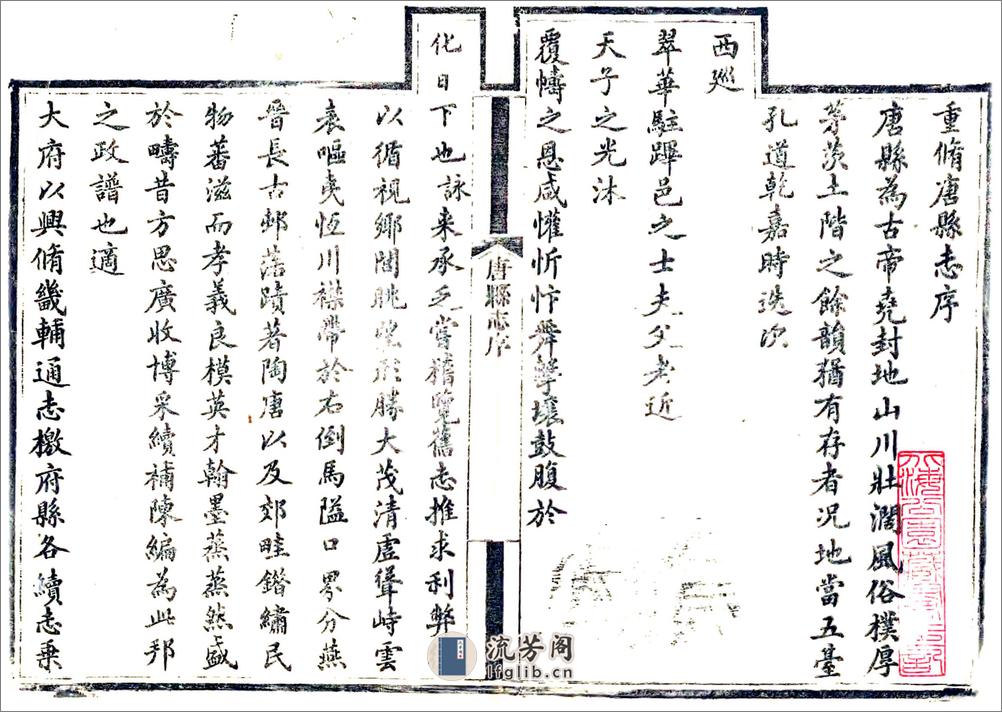 重脩唐縣志序
唐縣為古帝堯封地山川壯濶風俗樸厚
茅茨土階之餘韻猶有存者况地當五臺
孔道乾嘉時迭次
西巡
翠華駐蹕邑之士夫父老近
天子之光沐
覆幬之恩咸懽忻忭舞擊壤鼓腹於
唐縣志序
化日下也詠来承乏嘗稽覽舊志推求利弊
以循視鄉閭眺望形勝大茂清虛聳峙雲
表嘔夷恆川襟帶於右倒馬隘口界分燕
晉長古邨落蹟著陶唐以及郊畦鍇繡民
物蕃滋而孝義良模英才翰墨蒸蒸然盛
於疇昔方思廣收博采續補陳編為此邦
之政譜也適
大府以興脩畿輔通志檄府縣各續志乘
流芳阁
lfglib.cn